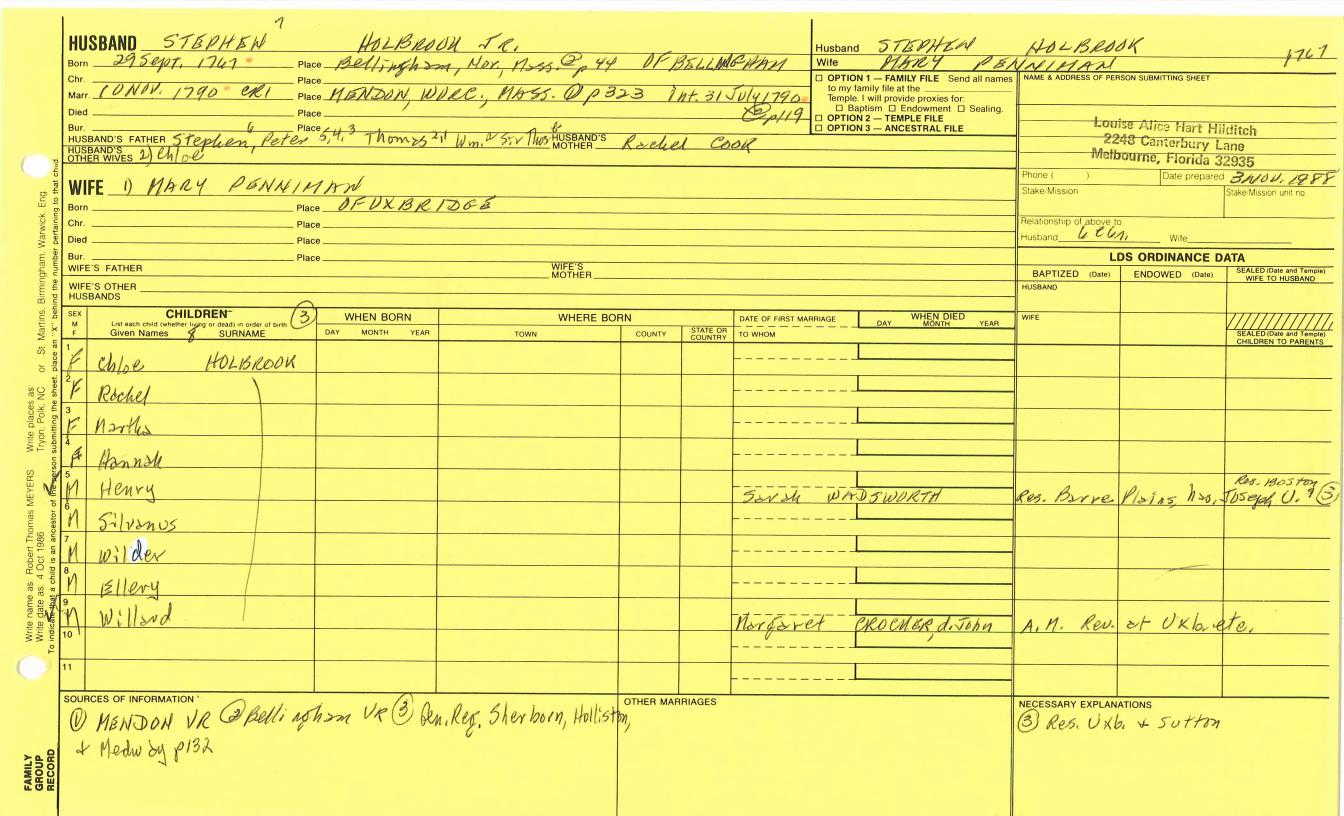 7
HUSBAND STEPHEN HOLBROOK JR.
Husband STEPHEN HOLBROOK 1767
Wife MARY PENNIMAN
Born 29 Sept. 1767 Place Bellingham, Nor., Mass. ② p 44 OF BELLINGHAM
Chr. Place
Marr. 10 NOV. 1790 CR1 Place MENDON, WORC., MASS. ① p 323 Int. 31 July 1790
Died Place ② p 119
Bur. Place
☐ OPTION 1 — FAMILY FILE Send all names
to my family file at the
Temple. I will provide proxies for:
☐ Baptism ☐ Endowment ☐ Sealing.
☐ OPTION 2 — TEMPLE FILE
☐ OPTION 3 — ANCESTRAL FILE
NAME & ADDRESS OF PERSON SUBMITTING SHEET
Louise Alice Hart Hilditch
2248 Canterbury Lane
Melbourne, Florida 32935
HUSBAND'S FATHER Stephen, 6 Peter 5,4,3 Thomas 2,1 Wm.
HUSBAND'S MOTHER Rachel COOK
HUSBAND'S OTHER WIVES 2) Chloe
Phone ( ) Date prepared 3 NOV. 1988
Stake/Mission Stake/Mission unit no.
Relationship of above to
Husband Wife
WIFE 1) MARY PENNIMAN
Born Place OF UXBRIDGE
Chr. Place
Died Place
Bur. Place
WIFE'S FATHER WIFE'S MOTHER
WIFE'S OTHER HUSBANDS
LDS ORDINANCE DATA
BAPTIZED (Date) ENDOWED (Date) SEALED (Date and Temple) WIFE TO HUSBAND
HUSBAND
WIFE
SEALED (Date and Temple) CHILDREN TO PARENTS
SEX M F CHILDREN ③ WHEN BORN WHERE BORN DATE OF FIRST MARRIAGE WHEN DIED
List each child (whether living or dead) in order of birth
Given Names 8 SURNAME DAY MONTH YEAR TOWN COUNTY STATE OR COUNTRY TO WHOM DAY MONTH YEAR
1 F Chloe HOLBROOK
2 F Rachel
3 F Martha
4 F Hannah
5 M Henry Sarah WADSWORTH Res. Barre Plains, Res. BOSTON Joseph U. ③
6 M Silvanus
7 M Wilder
8 M Ellery
9 M Willard Margaret CROCKER, d. John A.M. Rev. at Uxb. etc.
10
11
SOURCES OF INFORMATION
① MENDON VR ② Bellingham VR ③ Gen. Reg. Sherborn, Holliston,
+ Medway p132
OTHER MARRIAGES
NECESSARY EXPLANATIONS
③ Res. Uxb. + Sutton
Write name as: Robert Thomas MEYERS Write places as: Tryon, Polk, NC or St. Martins, Birmingham, Warwick, Eng.
Write date as: 4 Oct 1986
To indicate that a child is an ancestor of the person submitting the sheet, place an "X" behind the number pertaining to that child
FAMILY GROUP RECORD